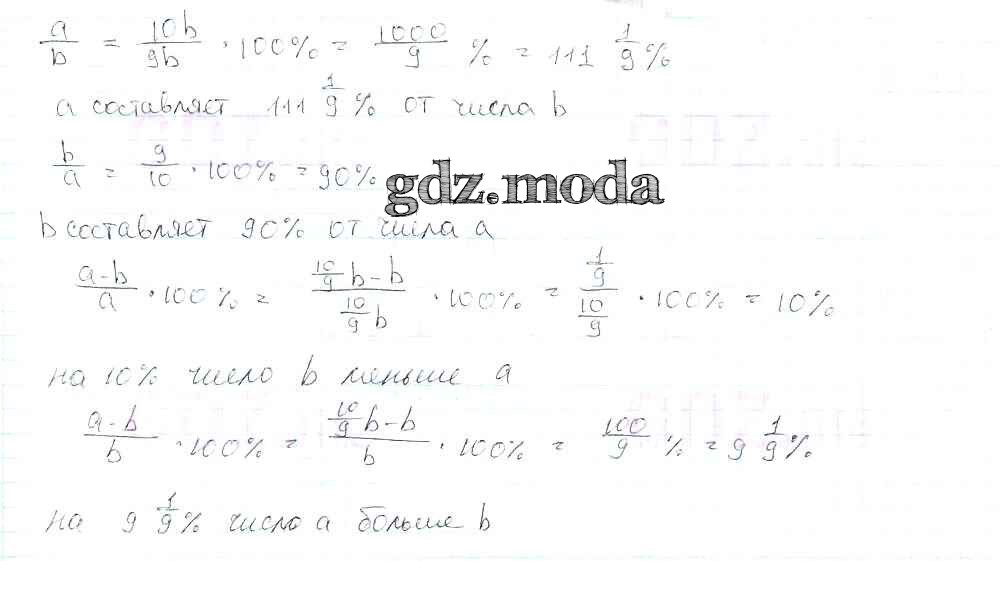 a/b = 10b/9b · 100% = 1000/9 % = 111 1/9 %
a составляет 111 1/9 % от числа b
b/a = 9/10 · 100% = 90%
gdz.moda
b составляет 90% от числа a
(a-b)/a · 100% = (10/9 b - b)/(10/9 b) · 100% = (1/9)/(10/9) · 100% = 10%
на 10% число b меньше a
(a-b)/b · 100% = (10/9 b - b)/b · 100% = 100/9 % = 9 1/9 %
на 9 1/9 % число a больше b